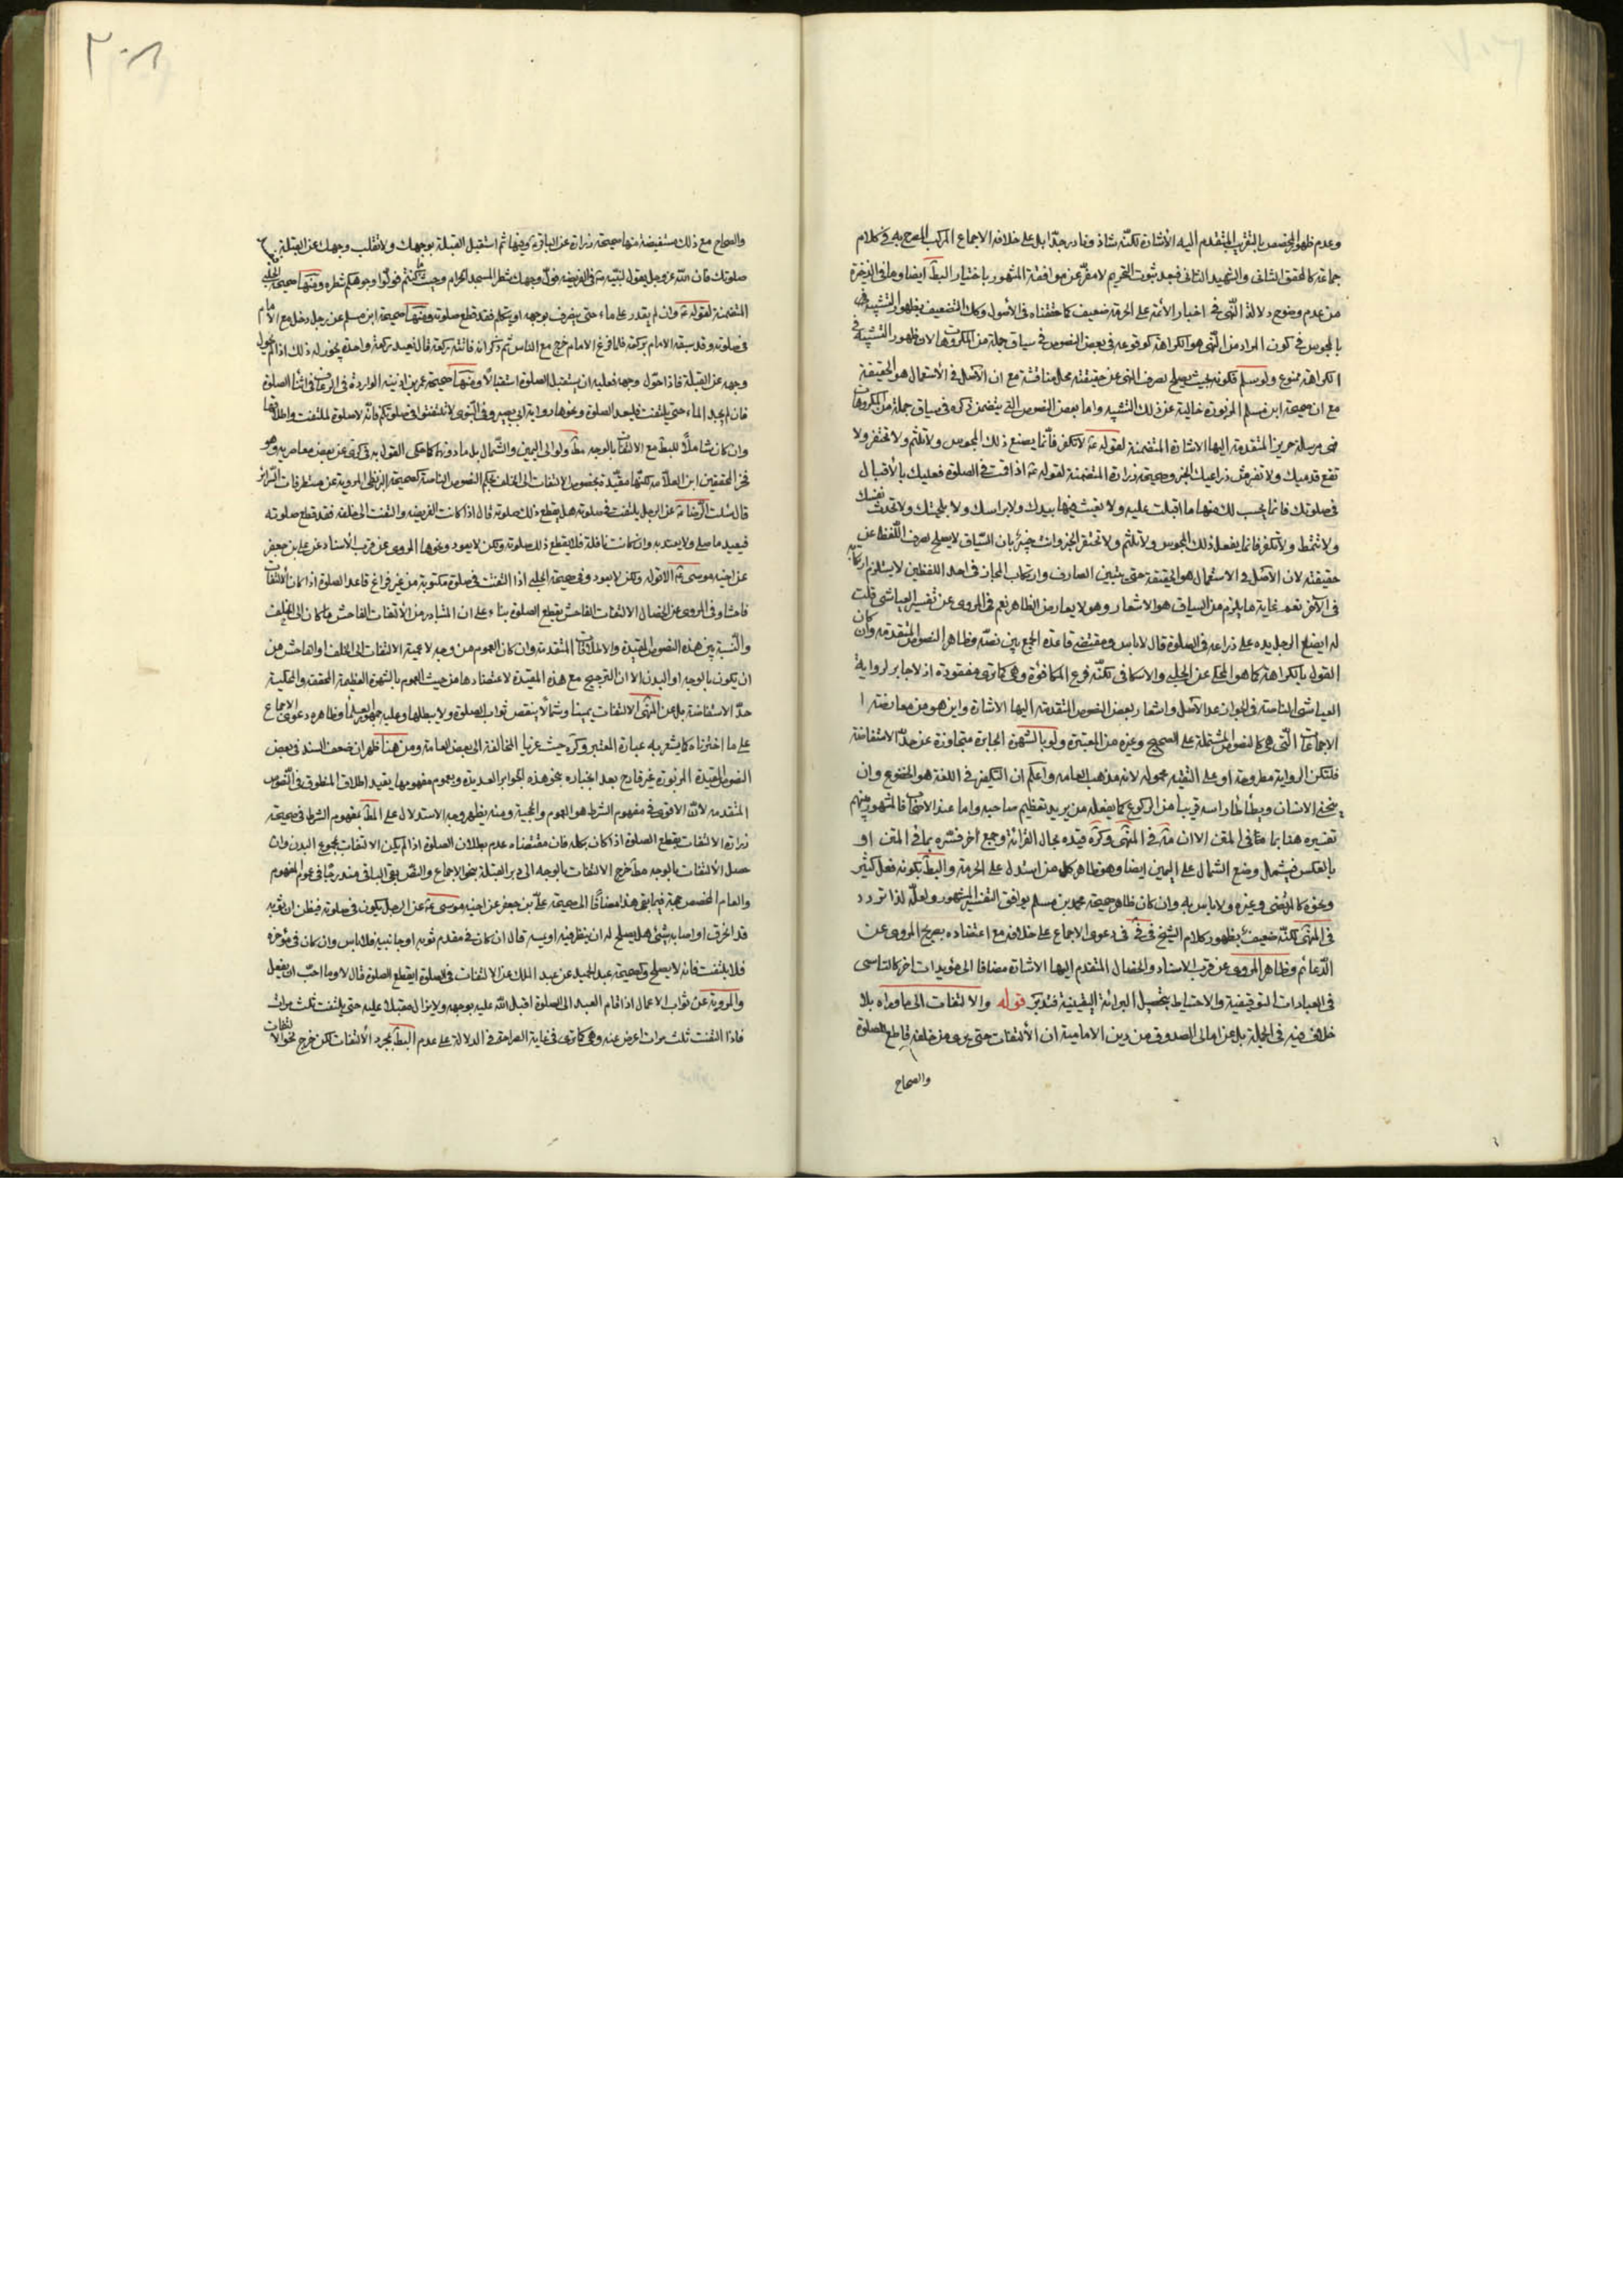 وعدم ظهور المخصص بالتقريب المتقدم اليه الاشارة لكنّه شاذ ونادر جدّا بل على خلافه الاجماع المركب المصرح به في كلام
جماعة كالمحقق الثانى والشهيد الثانى فبعد ثبوت التحريم لا مفرّ عن موافقة المشهور باختيار البط ايضا وما فى الذخيرة
من عدم وضوح دلالة النّهى في اخبار الائمة على الحرمة ضعيف كما حققناه فى الأصول وكك التضعيف بظهور التشبيه
بالمجوس في كون المراد من النّهى هو الكراهة كوقوعه فى بعض النصوص في سياق جملة من المكروهات لان ظهور التشبيه في
الكراهة ممنوع ولو سلم فكونه بحيث يصلح لصرف النهى عن حقيقته محل مناقشة مع ان الاصل في الاستعمال هو الحقيقة
مع ان صحيحة ابن مسلم المزبورة خالية عن ذلك التشبيه واما بعض النصوص التى يتضمن ذكره في سياق جملة من المكروهات
فهى مرسلة حريز المتقدمة اليها الاشارة المتضمنة لقوله ع لا تكفر فانّما يصنع ذلك المجوس ولا تلثم ولا تحتفز ولا
تقع قدميك ولا تفترش ذراعيك الخبر وصحيحة زرارة المتضمنة لقوله ع اذا قمت في الصلوة فعليك بالأقبال
فى صلوتك فانما يحسب لك منها ما اقبلت عليه ولا تعبث فيها بيدك ولا براسك ولا بلحيتك ولا تحدث نفسك
ولا تتمط ولا تكفر فانما يفعل ذلك المجوس ولا تلثم ولا تحتفز الخبر وانت خبير بان السّياق لا يصلح لصرف اللّفظ عن
حقيقته لان الاصل في الاستعمال هو الحقيقة حتى يتبين الصارف وارتكاب المجاز فى احد اللفظين لا يستلزم ارتكابه
فى الآخر نعم غاية ما يلزم من السياق هو الاشعار وهو لا يعارض الظاهر نعم فى المروى عن تفسير العياشى قلت
له ايضع الرجل يده على ذراعه فى الصلوة قال لا باس ومقتضى قاعدة الجمع بين نصّه وظاهر النصوص المتقدمة وان كان
القول بالكراهة كما هو المحكى عن الحلبى والاسكافى لكنّه فرع المكافؤة وهى كما ترى مفقودة اذ لا جابر لرواية
العياشى الناصة فى الجواز عدا الاصل واشعار بعض النصوص المتقدمة اليها الاشارة واين هو من معارضته ا
الاجماعات الّتى هى كالنصوص المشتملة على الصحيح وغيره من المعتبرة ولو بالشهرة الجابرة متجاوزة عن حدّ الاستفاضة
فلتكن الرواية مطروحة او على التقيه محمولة لانه مذهب العامه واعلم ان التكفير في اللغة هو الخضوع وان
ينحنى الانسان ويطأطأ راسه قريبا من الركوع كما يفعله من يريد تعظيم صاحبه واما عند الاصحاب فالمشهور بينهم
تفسيره هنا بما فى المتن الا ان فى المنتهى وكره قيده بحال القرائة وجمع آخر فسّره بما في المتن او
بالعكس فيشمل وضع الشمال على اليمين ايضا وهو ظاهر كل من استدل على الحرمة والبط بكونه فعل كثير
ونحوه كالمرتضى وغيره ولا باس به وان كان ظاهر صحيحة محمد بن مسلم يوافق التفسير المشهور ولعلّه لذا تردد
فى المنتهى لكنّه ضعيف بظهور كلام الشيخ فى ف في دعوى الاجماع على خلافه مع اعتضاده بصريح المروى عن
الدّعائم وظاهر المروى عن قرب الاسناد والخصال المتقدم اليها الاشارة مضافا الى مؤيدات اخر كالتاسى
فى العبادات التوقيفية والاحتياط بتحصيل البرائة اليقينية فتدبر قوله والالتفات الى ما وراه بلا
خلاف فيه فى الجملة بل عن امالى الصدوق من دين الامامية ان الألتفات حتى يرى من خلفه قاطع للصلوة
والصحاح
والصحاح مع ذلك مستفيضة منها صحيحة زرارة عن الباقر ع وفيها ثم استقبل القبلة بوجهك ولا تقلب وجهك عن القبلة
صلوتك فان اللّه عزوجل يقول لنبيّه ص فى الفريضه فولّ وجهك شطر المسجد الحرام وحيث ما كنتم فولّوا وجوهكم شطره ومنها صحيحة الحلبى
المتضمنة لقوله ع وان لم يقدر على ماء حتى ينصرف بوجهه او يتكلم فقد قطع صلوته ومنها صحيحة ابن مسلم عن رجل دخل مع الامام
فى صلوته وقد سبقه الامام بركعة فلما فرغ الامام خرج مع الناس ثم ذكر انه فاتته ركعة قال يعيد ركعة واحدة يجوز له ذلك اذا لم يحول
وجهه عن القبلة فاذا حوّل وجهه فعليه ان يستقبل الصلوة استقبالا ومنها صحيحة عمر بن اذينة الواردة فى الرعاف فى اثناء الصلوة
فان لم يجد الماء حتى يلتفت فليعد الصلوة ونحوها رواية ابى بصير وفى النبوى لا تلتفتوا فى صلوتكم فانّه لا صلوة لملتفت واطلاقها
وان كان شاملا للبط مع الالتفات بالوجه مط ولو الى اليمين والشّمال بل ما دونهما كما حكى القول به فى كرى عن بعض معاصريه وهو
فخر المحققين ابن العلامه لكنها مقيّدة بخصوص الالتفات الى الخلف بحكم النصوص الناصة كصحيحة البزنطى المروية عن مستطرفات السّرائر
قال سئلت الرّضا ع عن الرجل يلتفت في صلوته هل يقطع ذلك صلوته قال اذا كانت الفريضه والتفت الى خلفه فقد قطع صلوته
فيعيد ما صلى ولا يعتد به وان كانت نافلة فلا يقطع ذلك صلوته ولكن لا يعود ونحوها المروى عن قرب الأسناد عن على بن جعفر
عن اخيه موسى ع الا قوله ولكن لا يعود وفى صحيحة الحلبى اذا التفت فى صلوة مكتوبة من غير فراغ فاعد الصلوة اذا كان الالتفات
فاحشا وفى المروى عن الخصال الالتفات الفاحش يقطع الصلوة بناء على ان المتبادر من الالتفات الفاحش ما كان الى الخلف
والنّسبة بين هذه النصوص المقيدة والاطلاقات المتقدمة وان كان العموم من وجه لاعمية الالتفات الى الخلف او الفاحش من
ان يكون بالوجه او البدن الا ان الترجيح مع هذه المقيدة لاعتضادها من حيث العموم بالشهرة العظيمة المحققة والمحكية
حدّ الاستفاضة بل عن المنتهى الالتفات يمينا وشمالا ينقص ثواب الصلوة ولا يبطلها وعليه جمهور العلماء وظاهره دعوى الاجماع
على ما اخترناه كما يشعر به عبارة المعتبر وكره حيث عزيا المخالفة الى بعض العامة ومن هنا ظهر ان ضعف السند فى بعض
النصوص المقيدة المزبورة غير قادح بعد انجباره بنحو هذه الجوابر العديدة وبعموم مفهومها يقيد اطلاق المنطوق فى النّصوص
المتقدمه لانّ الاقوى في مفهوم الشرط هو العموم والحجية ومنه يظهر وجه الاستدلال على المط بمفهوم الشرط فى صحيحة
زرارة الالتفات يقطع الصلوة اذا كان بكله فان مقتضاه عدم بطلان الصلوة اذا لم يكن الالتفات بمجموع البدن وان
حصل الألتفات بالوجه مط خرج الالتفات بالوجه الى دبر القبلة بنحو الاجماع والنصّ بقى الباقى مندرجا فى عموم المفهوم
والعام المخصص حجة فيما بقى هذا مضافا الى صحيحة علىّ بن جعفر عن اخيه موسى ع عن الرجل يكون فى صلوته فيظن ان ثوبه
قد انخرق او اصابه شئ هل يصلح له ان ينظر فيه او يسه قال ان كان فى مقدم ثوبه او جانبيه فلا باس وان كان فى مؤخره
فلا يلتفت فانه لا يصلح وكصحيحة عبد الحميد عن عبد الملك عن الالتفات فى الصلوة ايقطع الصلوة قال لا وما احبّ ان يفعل
والمروية عن ثواب الاعمال اذا قام العبد الى الصلوة اقبل اللّه عليه بوجهه ولا يزال مقبلا عليه حتى يلتفت ثلث مرات
فاذا التفت ثلث مرات اعرض عنه وهى كما ترى فى غاية الصراحة فى الدلالة على عدم البط بمجرد الألتفات لكن خرج نحو الالتفات